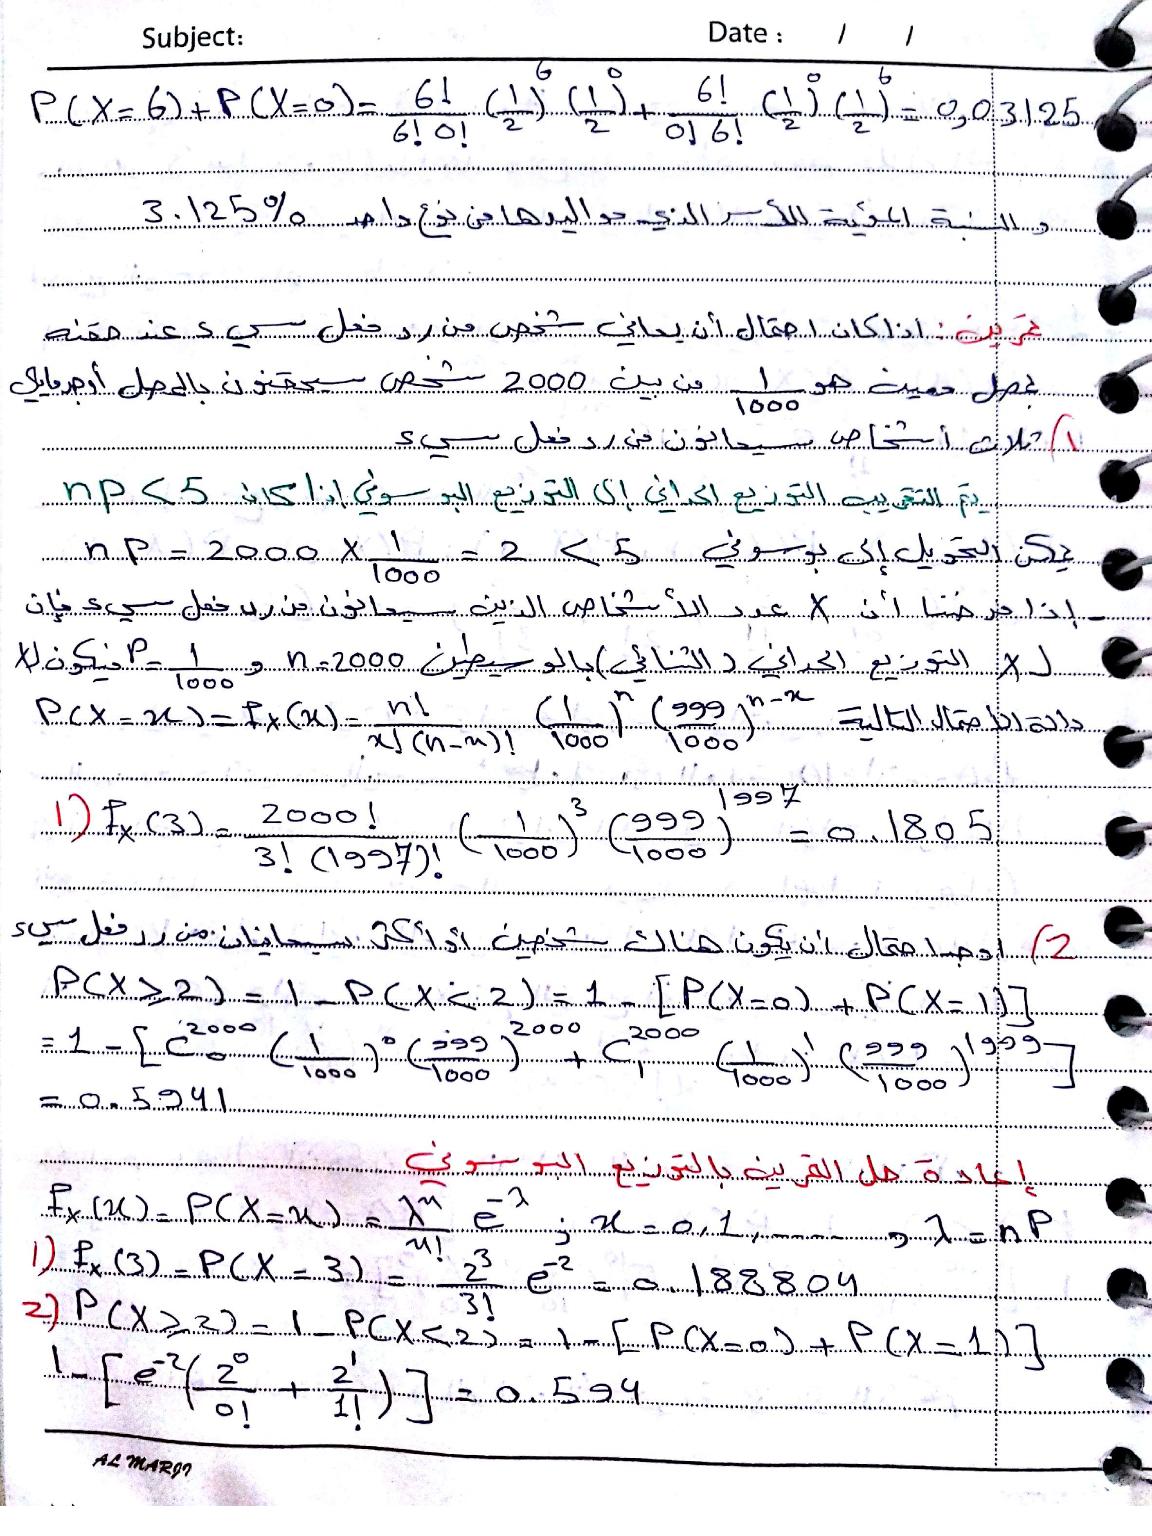 Subject: Date : / /
P(X=6)+P(X=0)= 6!/6!0! (1/2)^6 (1/2)^0 + 6!/0!6! (1/2)^0 (1/2)^6 = 0,03125
و النسبة المئوية للأسر الذي مواليدها من نوع واحد 3.125%
تمرين : اذا كان احتمال أن يعاني شخص من رد فعل سيء عند حقنه
بمصل معين هو 1/1000 من بين 2000 شخص سيحقنون بالمصل أوجد مايلي
1) ثلاث أشخاص سيعانون من رد فعل سيء
يتم التقريب التوزيع الحداني إلى التوزيع البوسوني إذا كان np < 5
يمكن التحويل إلى بوسوني np = 2000 x 1/1000 = 2 < 5
- إذا فرضنا أن X عدد الأشخاص الذين سيعانون من رد فعل سيء فإن
لـ X التوزيع الحداني (الثنائي) بالوسيطين n=2000 و P=1/1000 فيكون لـ X
دالة الاحتمال التالية P(X=x)=fx(x)= n!/x!(n-x)! (1/1000)^n (999/1000)^n-x
1) fx(3)= 2000!/3!(1997)! (1/1000)^3 (999/1000)^1997 = 0.1805
2) اوجد احتمال ان يكون هناك شخصين أو أكثر سيعانيان من رد فعل سيء
P(X≥2) = 1 - P(X<2) = 1 - [P(X=0) + P(X=1)]
= 1 - [C_0^2000 (1/1000)^0 (999/1000)^2000 + C_1^2000 (1/1000)^1 (999/1000)^1999]
= 0.5941
إعادة حل التمرين بالتوزيع البوسوني
fx(x)=P(X=x)= λ^x/x! e^-λ ; x=0,1,........ , λ=nP
1) fx(3)=P(X=3)= 2^3/3! e^-2 = 0.188804
2) P(X≥2)=1-P(X<2)=1-[P(X=0)+P(X=1)]
1-[e^-2(2^0/0! + 2^1/1!)] = 0.594
AL MARJI